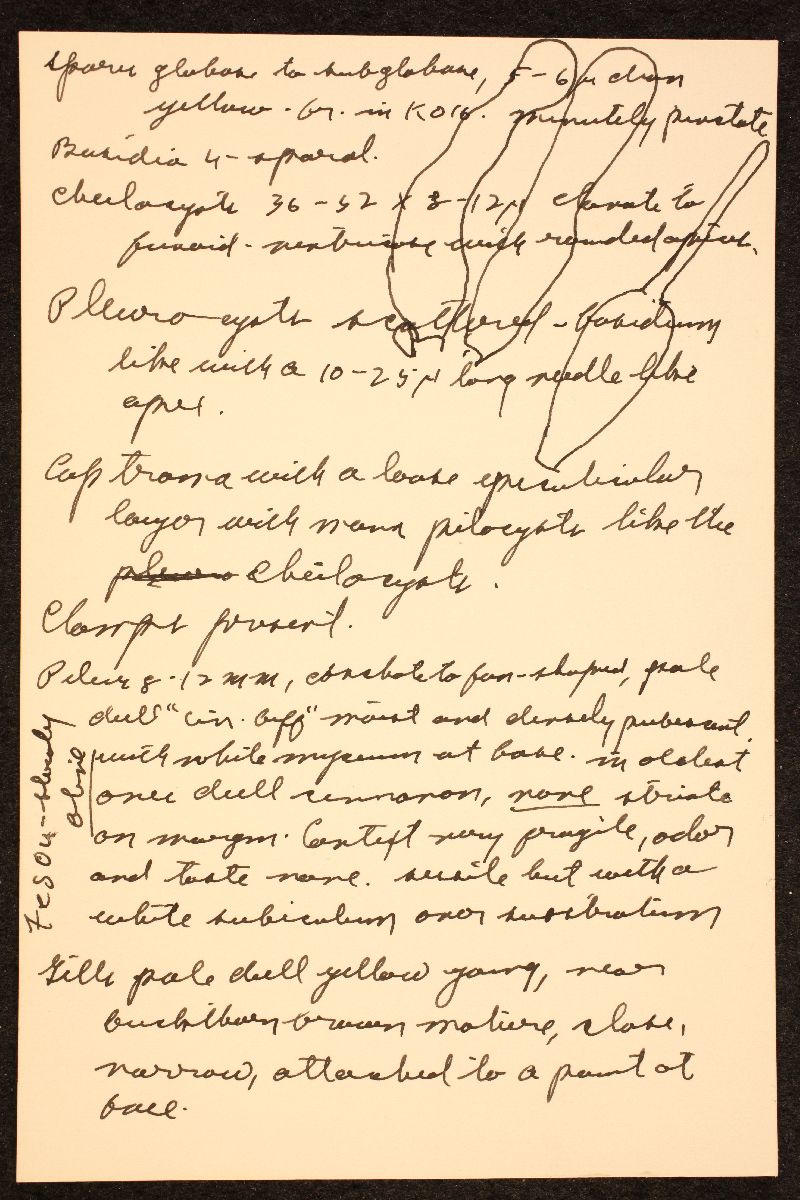 Spores globose to subglobose, 5-6 µ diam
yellow-br. in KOH. minutely punctate
Basidia 4-spored.
Cheilocysts 36-52 x 8-12µ clavate to
fusoid-ventricose with rounded apices.
Pleurocysts scattered-basidium
like with a 10-25µ long needle like
apex.
Cap trama with a loose epicuticular
layer with many pilocysts like the
pleuro cheilocysts.
Clamps present.
Pileus 8-12 mm, conchate to fan-shaped, pale
dull "cin. buff" moist and densely pubescent
with white mycelium at base. in oldest
ones dull cinnamon, none striate
on margin. Context very fragile, odor
and taste none. sessile but with a
white subiculum over substratum
FeSO4-slowly
olive
Gills pale dull yellow young, near
buckthorn brown mature, close,
narrow, attached to a point at
base.